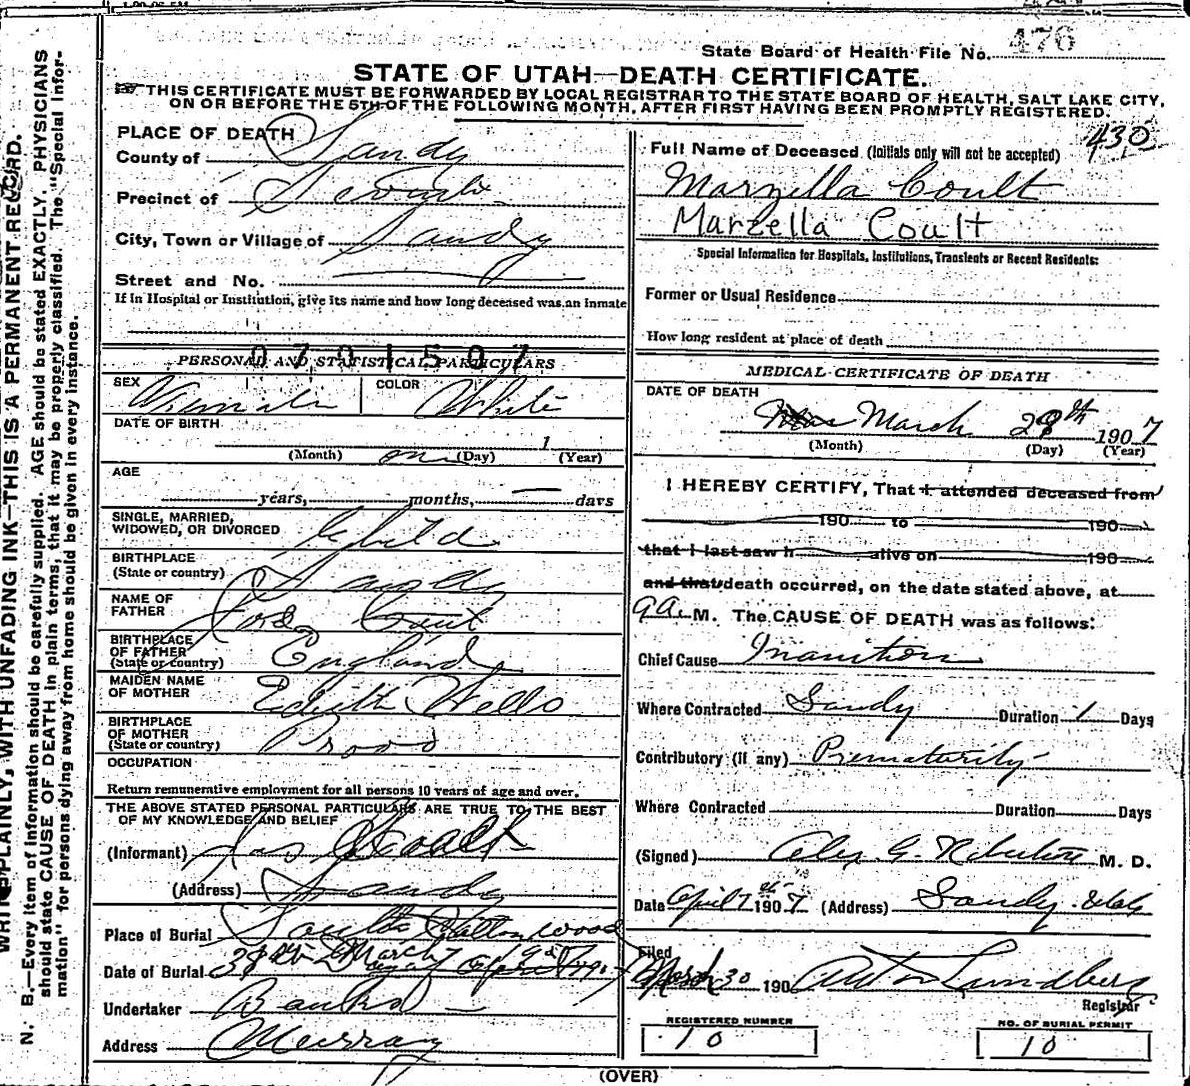 State Board of Health File No. 476
STATE OF UTAH—DEATH CERTIFICATE.
THIS CERTIFICATE MUST BE FORWARDED BY LOCAL REGISTRAR TO THE STATE BOARD OF HEALTH, SALT LAKE CITY,
ON OR BEFORE THE 5TH OF THE FOLLOWING MONTH, AFTER FIRST HAVING BEEN PROMPTLY REGISTERED.
PLACE OF DEATH
County of Sandy
Precinct of
City, Town or Village of Sandy
Street and No.
If in Hospital or Institution, give its name and how long deceased was an inmate
0701507
PERSONAL AND STATISTICAL PARTICULARS
SEX Female COLOR White
DATE OF BIRTH
1
(Month) one (Day) (Year)
AGE
years, months, — days
SINGLE, MARRIED,
WIDOWED, OR DIVORCED Child
BIRTHPLACE
(State or country) Sandy
NAME OF
FATHER
BIRTHPLACE
OF FATHER
(State or country) England
MAIDEN NAME
OF MOTHER Edith Wells
BIRTHPLACE
OF MOTHER
(State or country) Provo
OCCUPATION
Return remunerative employment for all persons 10 years of age and over.
THE ABOVE STATED PERSONAL PARTICULARS ARE TRUE TO THE BEST
OF MY KNOWLEDGE AND BELIEF
(Informant) Jas Coult
(Address) Sandy
Place of Burial South Cottonwood
Date of Burial March
Undertaker
Address Murray
430
Full Name of Deceased (Initials only will not be accepted)
Marzella Coult
Marzella Coult
Special Information for Hospitals, Institutions, Transients or Recent Residents:
Former or Usual Residence
How long resident at place of death
MEDICAL CERTIFICATE OF DEATH
DATE OF DEATH
March 28th 1907
(Month) (Day) (Year)
I HEREBY CERTIFY, That I attended deceased from
190 to 190
that I last saw h alive on 190
and that death occurred, on the date stated above, at
9 A. M. The CAUSE OF DEATH was as follows:
Chief Cause Inanition
Where Contracted Sandy Duration 1 Days
Contributory (if any) Prematurity
Where Contracted Duration Days
(Signed) Alex. G. Robertson M. D.
Date April 7th 1907 (Address) Sandy Utah
Filed
March 30 190 Anton Lundberg
Registrar
REGISTERED NUMBER
10
NO. OF BURIAL PERMIT
10
(OVER)
WRITE PLAINLY, WITH UNFADING INK—THIS IS A PERMANENT RECORD.
N. B.—Every item of information should be carefully supplied. AGE should be stated EXACTLY. PHYSICIANS
should state CAUSE OF DEATH in plain terms, that it may be properly classified. The "Special Infor-
mation" for persons dying away from home should be given in every instance.